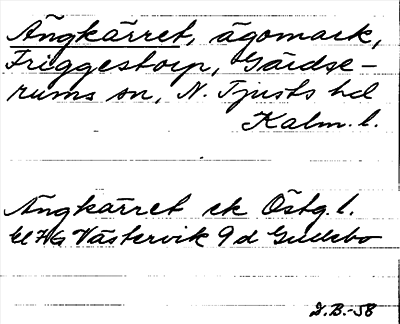 Ängkärret, ägomark,
Friggestorp, Gärdse-
rums sn, N. Tjusts hd
Kalm. l.
Ängkärret ek Östg. l.
Västervik 9 d Gudebo
D.B.-58